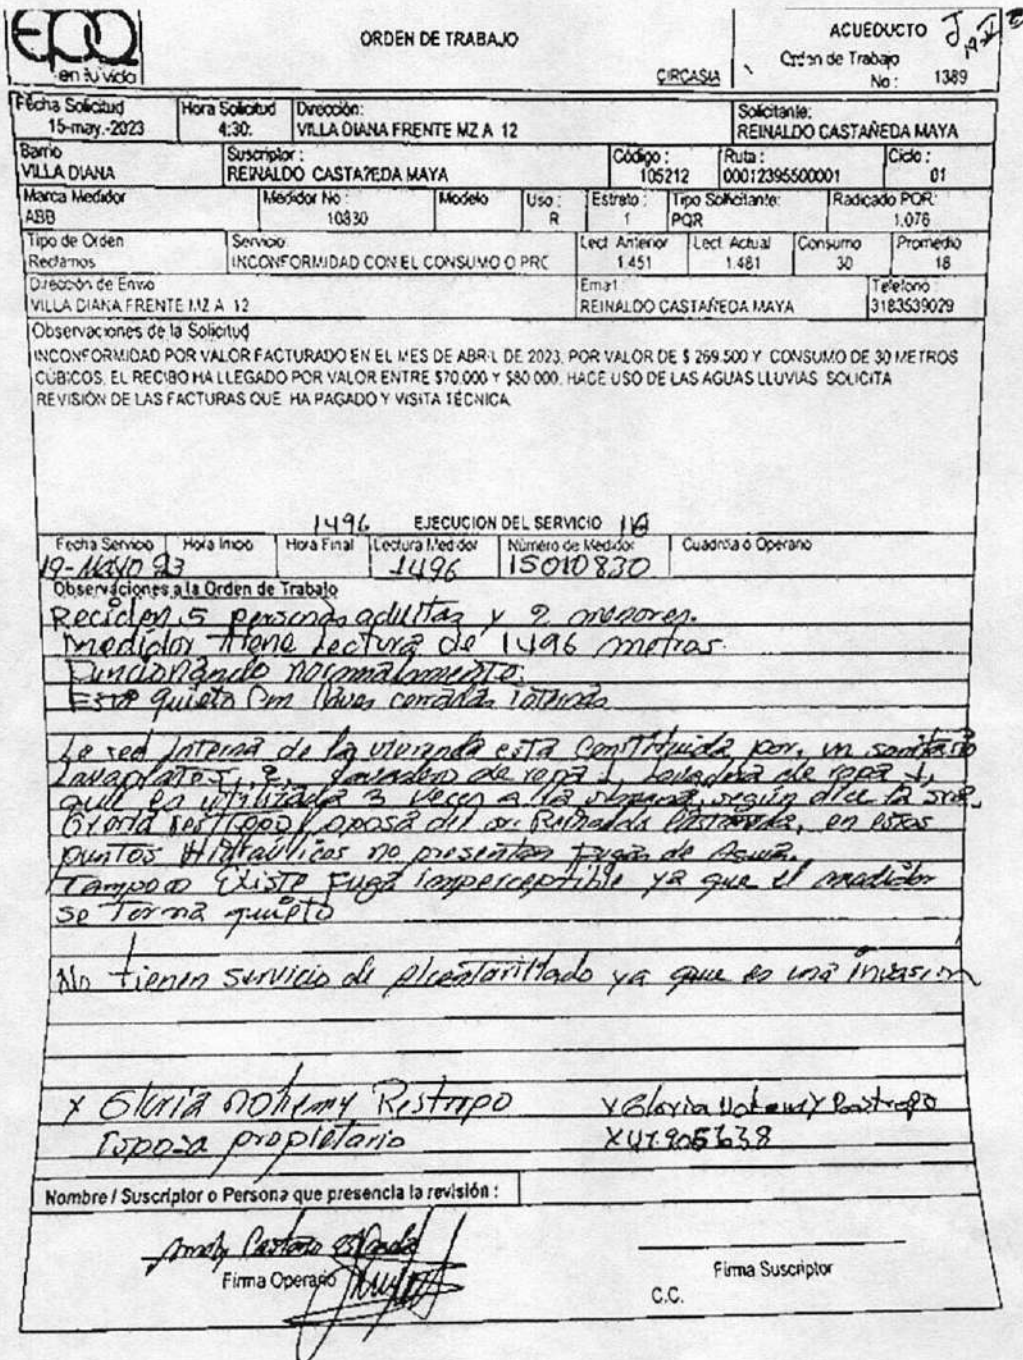 epq
en tu vida
ORDEN DE TRABAJO
CIRCASIA
ACUEDUCTO
Orden de Trabajo
No : 1389
Fecha Solicitud Hora Solicitud Dirección: Solicitante:
15-may.-2023 4:30: VILLA DIANA FRENTE MZ A 12 REINALDO CASTAÑEDA MAYA
Barrio Suscriptor : Código : Ruta : Ciclo :
VILLA DIANA REINALDO CASTA?EDA MAYA 105212 00012395500001 01
Marca Medidor Medidor No : Modelo Uso : Estrato : Tipo Solicitante: Radicado PQR:
ABB 10830 R 1 PQR 1.076
Tipo de Orden Servicio: Lect. Anterior Lect. Actual Consumo Promedio
Reclamos INCONFORMIDAD CON EL CONSUMO O PRC 1.451 1.481 30 18
Dirección de Envio Email : Telefono :
VILLA DIANA FRENTE MZ A 12 REINALDO CASTAÑEDA MAYA 3183539029
Observaciones de la Solicitud
INCONFORMIDAD POR VALOR FACTURADO EN EL MES DE ABRIL DE 2023, POR VALOR DE $ 269.500 Y CONSUMO DE 30 METROS
CÚBICOS. EL RECIBO HA LLEGADO POR VALOR ENTRE $70.000 Y $80.000. HACE USO DE LAS AGUAS LLUVIAS SOLICITA
REVISIÓN DE LAS FACTURAS QUE HA PAGADO Y VISITA TÉCNICA.
1496 EJECUCION DEL SERVICIO
Fecha Servicio Hora Inicio Hora Final Lectura Medidor Número de Medidor Cuadrilla ó Operario
19-MAYO 23 1496 15010830
Observaciones a la Orden de Trabajo
Reciden 5 personas adultas y 2 menores.
medidor tiene Lectura de 1496 metros.
Funcionando normalmente.
Este quieto con llaves cerradas internas
La red interna de la vivienda está constituida por, un sanitario
Lavaplatos, 2, lavadero de ropa 1, Lavadora de ropa 1,
que es utilizada 3 veces a la semana, según dice la sra.
Gloria Restrepo esposa del sr. Reinaldo Castañeda, en estos
puntos Hidraúlicos no presentan Fugas de Agua.
Tampoco Existe Fuga imperceptible ya que el medidor
se Torna quieto
No tienen servicio de alcantarillado ya que es una invasion
x Gloria Nohemy Restrepo x Gloria Nohemy Restrepo
Esposa propietario
Nombre / Suscriptor o Persona que presencia la revisión :
Firma Operario Firma Suscriptor
C.C.